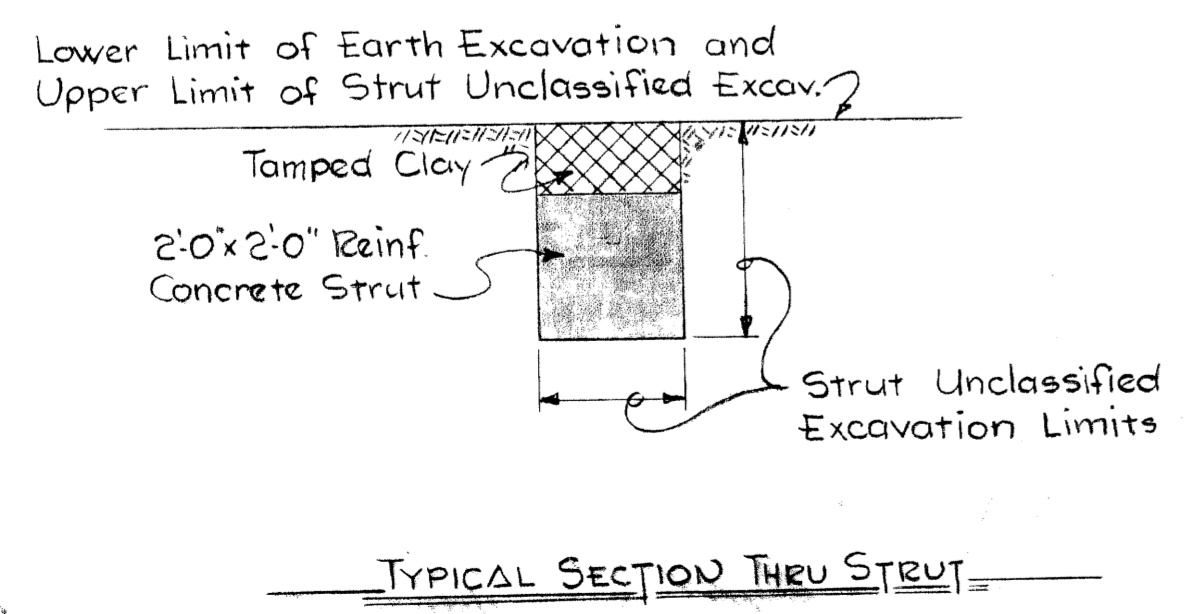 Lower Limit of Earth Excavation and
Upper Limit of Strut Unclassified Excav.
Tamped Clay
2'-0"x 2'-0" Reinf.
Concrete Strut
Strut Unclassified
Excavation Limits
TYPICAL SECTION THRU STRUT